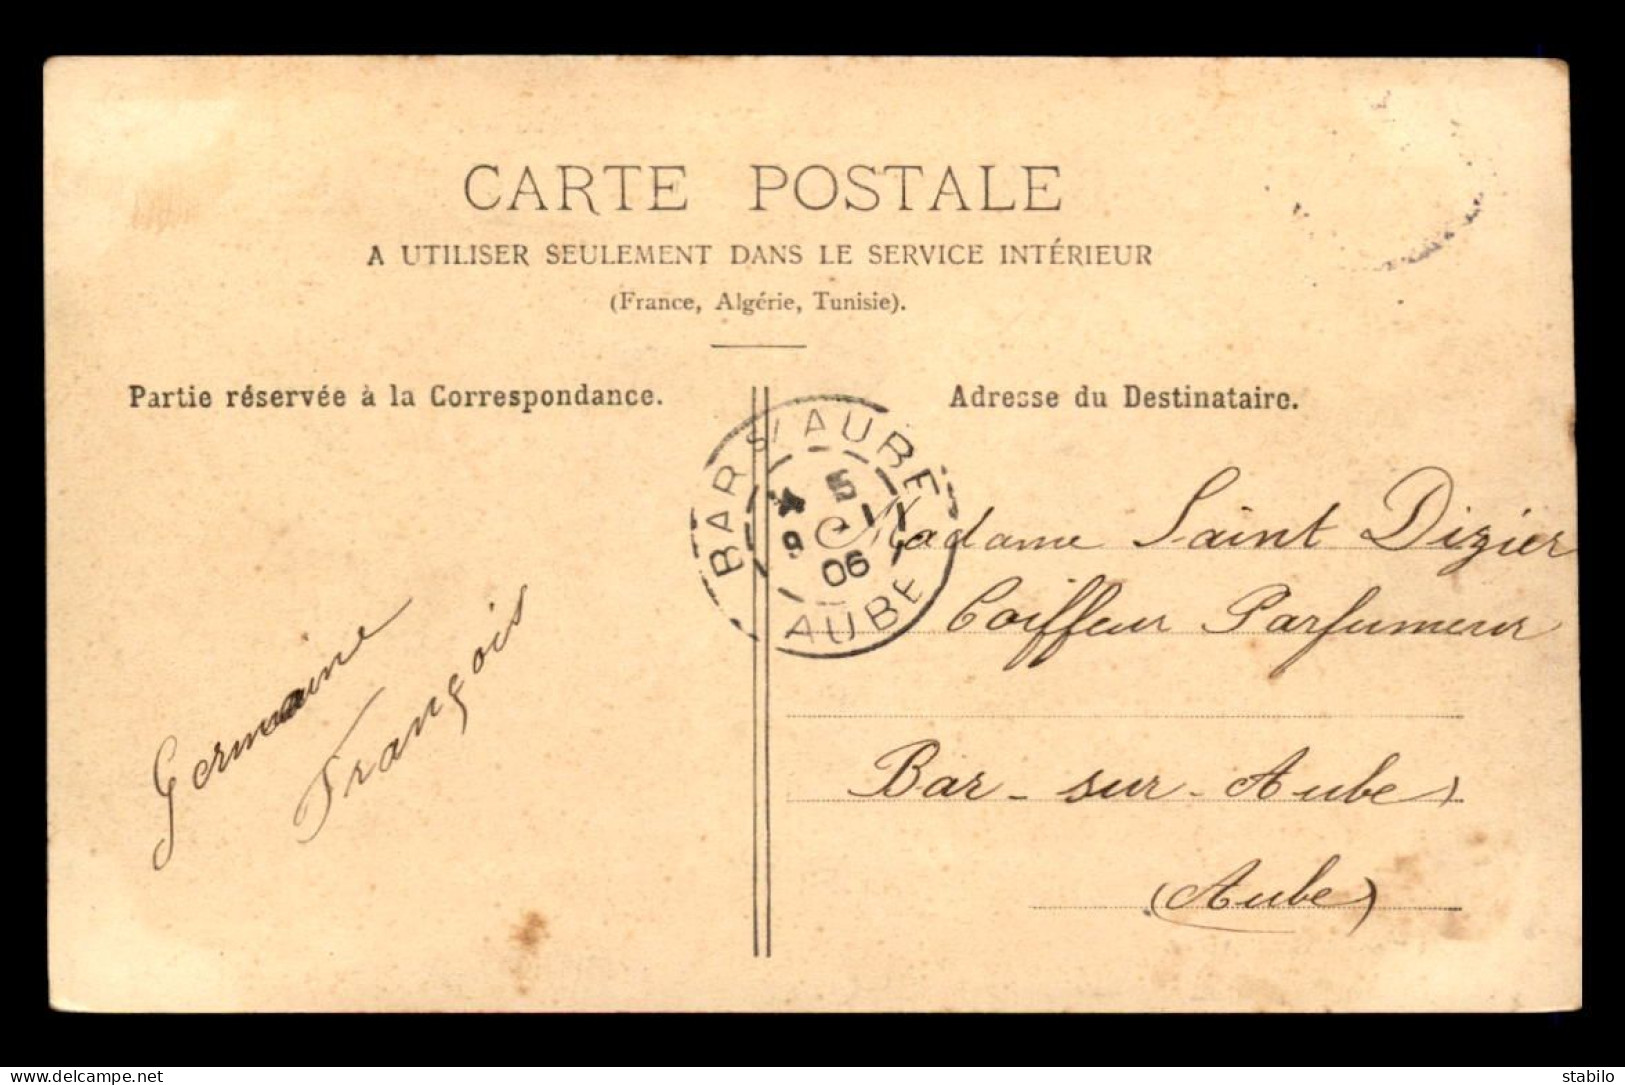 CARTE POSTALE
A UTILISER SEULEMENT DANS LE SERVICE INTÉRIEUR
(France, Algérie, Tunisie).
Partie réservée à la Correspondance.
Adresse du Destinataire.
BAR S/ AUBE
5
9
06
AUBE
Germaine
François
Madame Saint Dizier
Coiffeur Parfumeur
Bar-sur-Aube
(Aube)
www.delcampe.net
stabilo